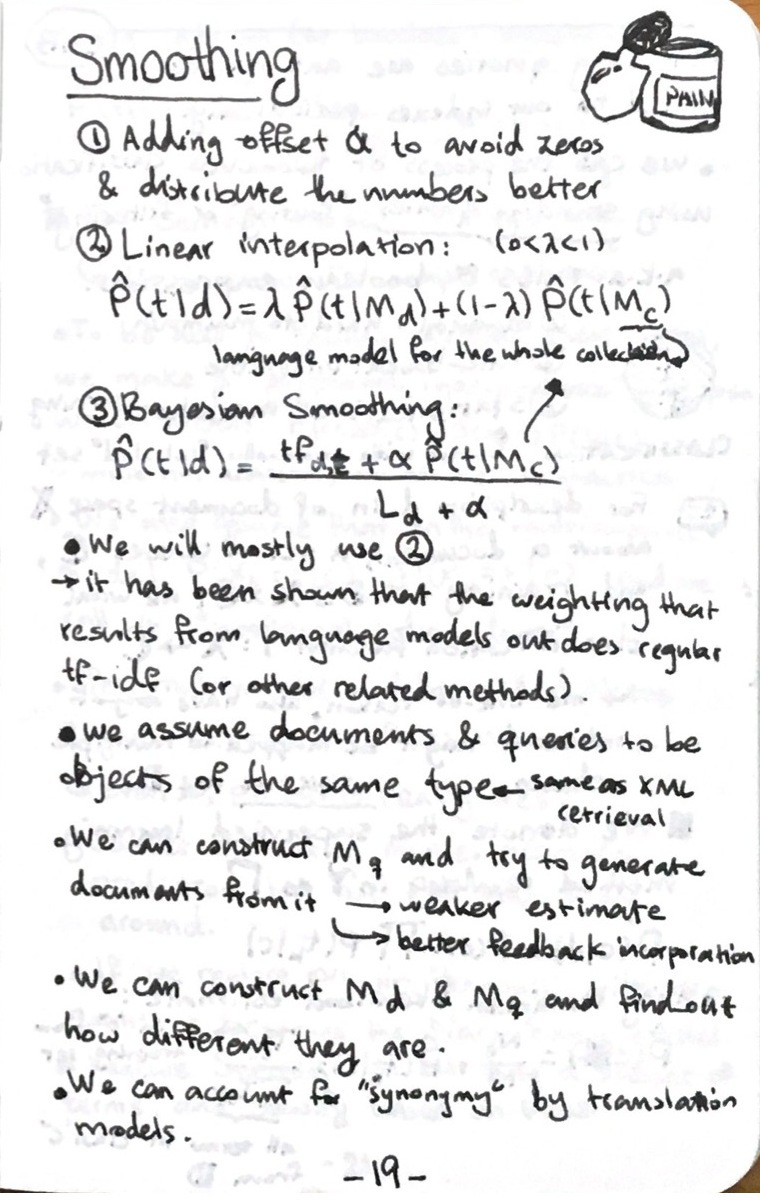 Smoothing
PAIN
① Adding offset α to avoid zeros
& distribute the numbers better
② Linear interpolation: (0<λ<1)
P̂(t|d) = λ P̂(t|M_d) + (1-λ) P̂(t|M_c)
language model for the whole collection
③ Bayesian Smoothing:
P̂(t|d) = (tf_d,t + α P̂(t|M_c)) / (L_d + α)
• We will mostly use ②
→ it has been shown that the weighting that
results from language models outdoes regular
tf-idf (or other related methods).
• we assume documents & queries to be
objects of the same type ← same as XML
retrieval
• We can construct M_q and try to generate
documents from it → weaker estimate
→ better feedback incorporation
• We can construct M_d & M_q and find out
how different they are.
• We can account for "synonymy" by translation
models.
- 19 -